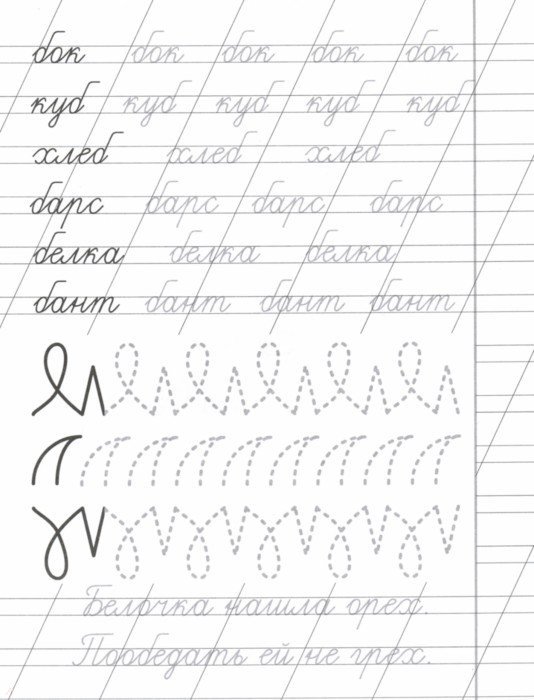 бок бок бок бок бок
куб куб куб куб куб
хлеб хлеб хлеб
барс барс барс барс
белка белка белка
бант бант бант бант
Белочка нашла орех.
Пообедать ей не грех.